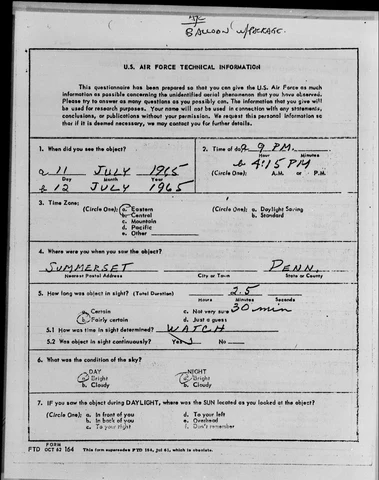 BALLOON W/PACKAGE.
U.S. AIR FORCE TECHNICAL INFORMATION
This questionnaire has been prepared so that you can give the U.S. Air Force as much
information as possible concerning the unidentified aerial phenomenon that you have observed.
Please try to answer as many questions as you possibly can. The information that you give will
be used for research purposes. Your name will not be used in connection with any statements,
conclusions, or publications without your permission. We request this personal information so
that if it is deemed necessary, we may contact you for further details.
1. When did you see the object?
a 11 JULY 1965
Day Month Year
b 12 JULY 1965
2. Time of day: a 9 PM.
Hour Minutes
b 4:15 PM
(Circle One): A.M. or P.M.
3. Time Zone:
(Circle One): a. Eastern
b. Central
c. Mountain
d. Pacific
e. Other
(Circle One): a. Daylight Saving
b. Standard
4. Where were you when you saw the object?
SUMMERSET PENN.
Nearest Postal Address City or Town State or County
5. How long was object in sight? (Total Duration) 2.5
Hours Minutes Seconds
30 min
a. Certain c. Not very sure
b. Fairly certain d. Just a guess
5.1 How was time in sight determined? WATCH
5.2 Was object in sight continuously? Yes No
6. What was the condition of the sky?
DAY NIGHT
a. Bright a. Bright
b. Cloudy b. Cloudy
7. IF you saw the object during DAYLIGHT, where was the SUN located as you looked at the object?
(Circle One): a. In front of you d. To your left
b. In back of you e. Overhead
c. To your right f. Don't remember
FORM
FTD OCT 62 164 This form supersedes FTD 164, Jul 61, which is obsolete.